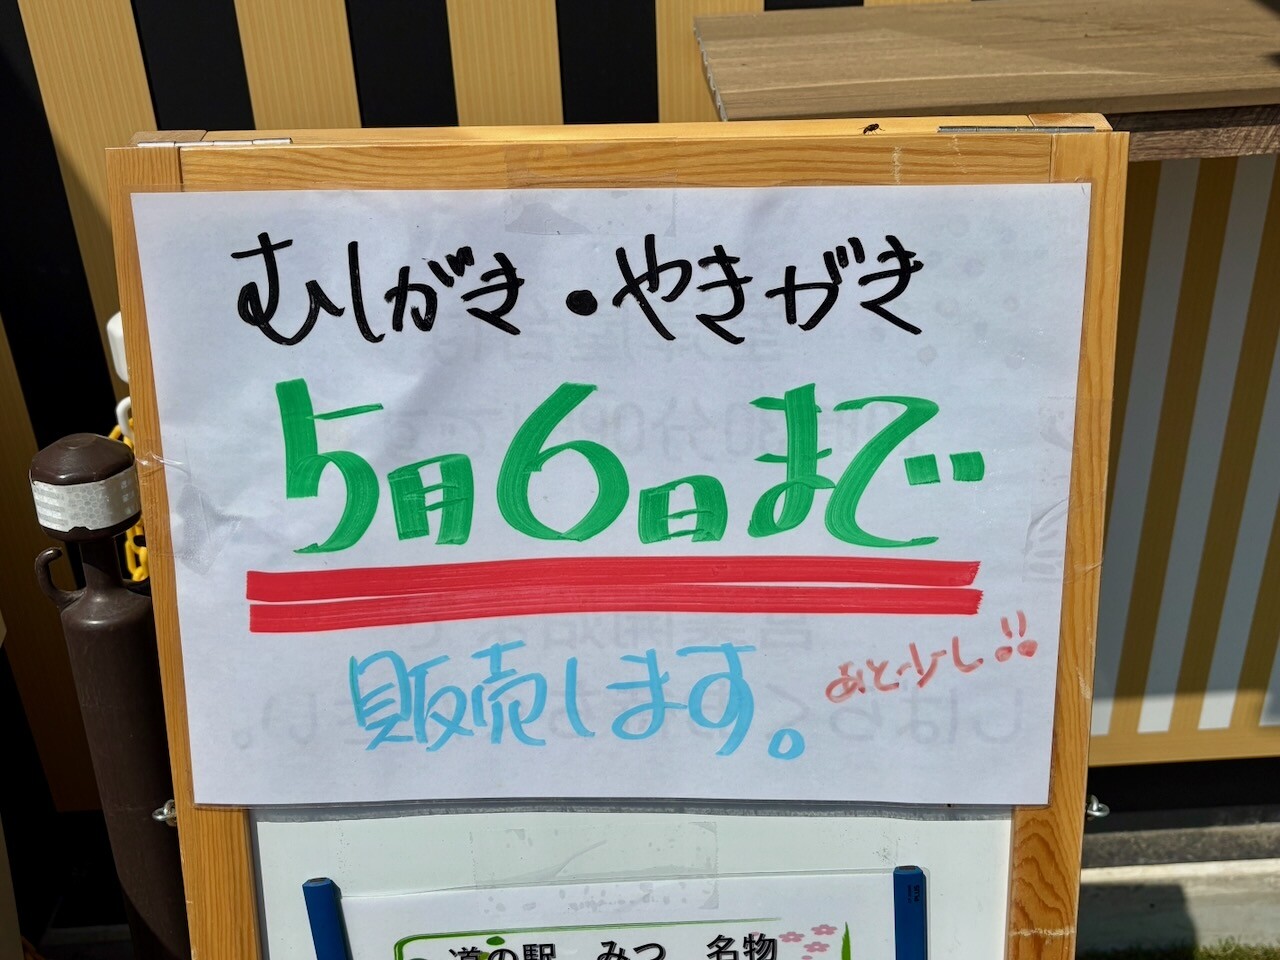 むしがき・やきがき
5月6日まで
販売します。
あと少し!!
道の駅 みつ 名物
PLUS